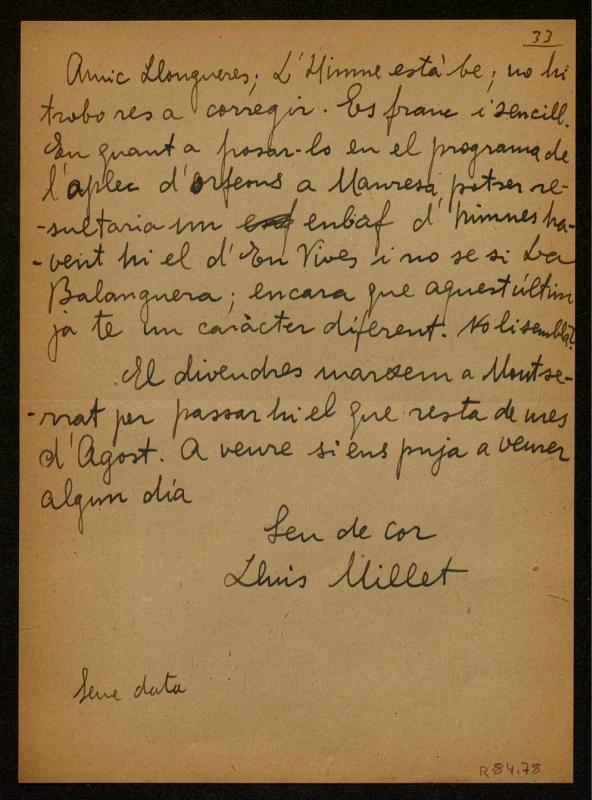 33
Amic Llongueres; L'Himne està be; no hi
trobo res a corregir. Es franc i sencill.
En quant a posar-lo en el programa de
l'aplec d'orfeons a Manresa potser re-
-sultaria un enbaf d'himnes ha-
-vent hi el d'En Vives i no se si La
Balanguera; encara que aquest últim
ja te un caràcter diferent. No li sembla?
El divendres marxem a Montse-
-rrat per passar hi el que resta de mes
d'Agost. A veure si ens puja a veurer
algun dia
Seu de cor
Lluis Millet
Sene data
R.84.78